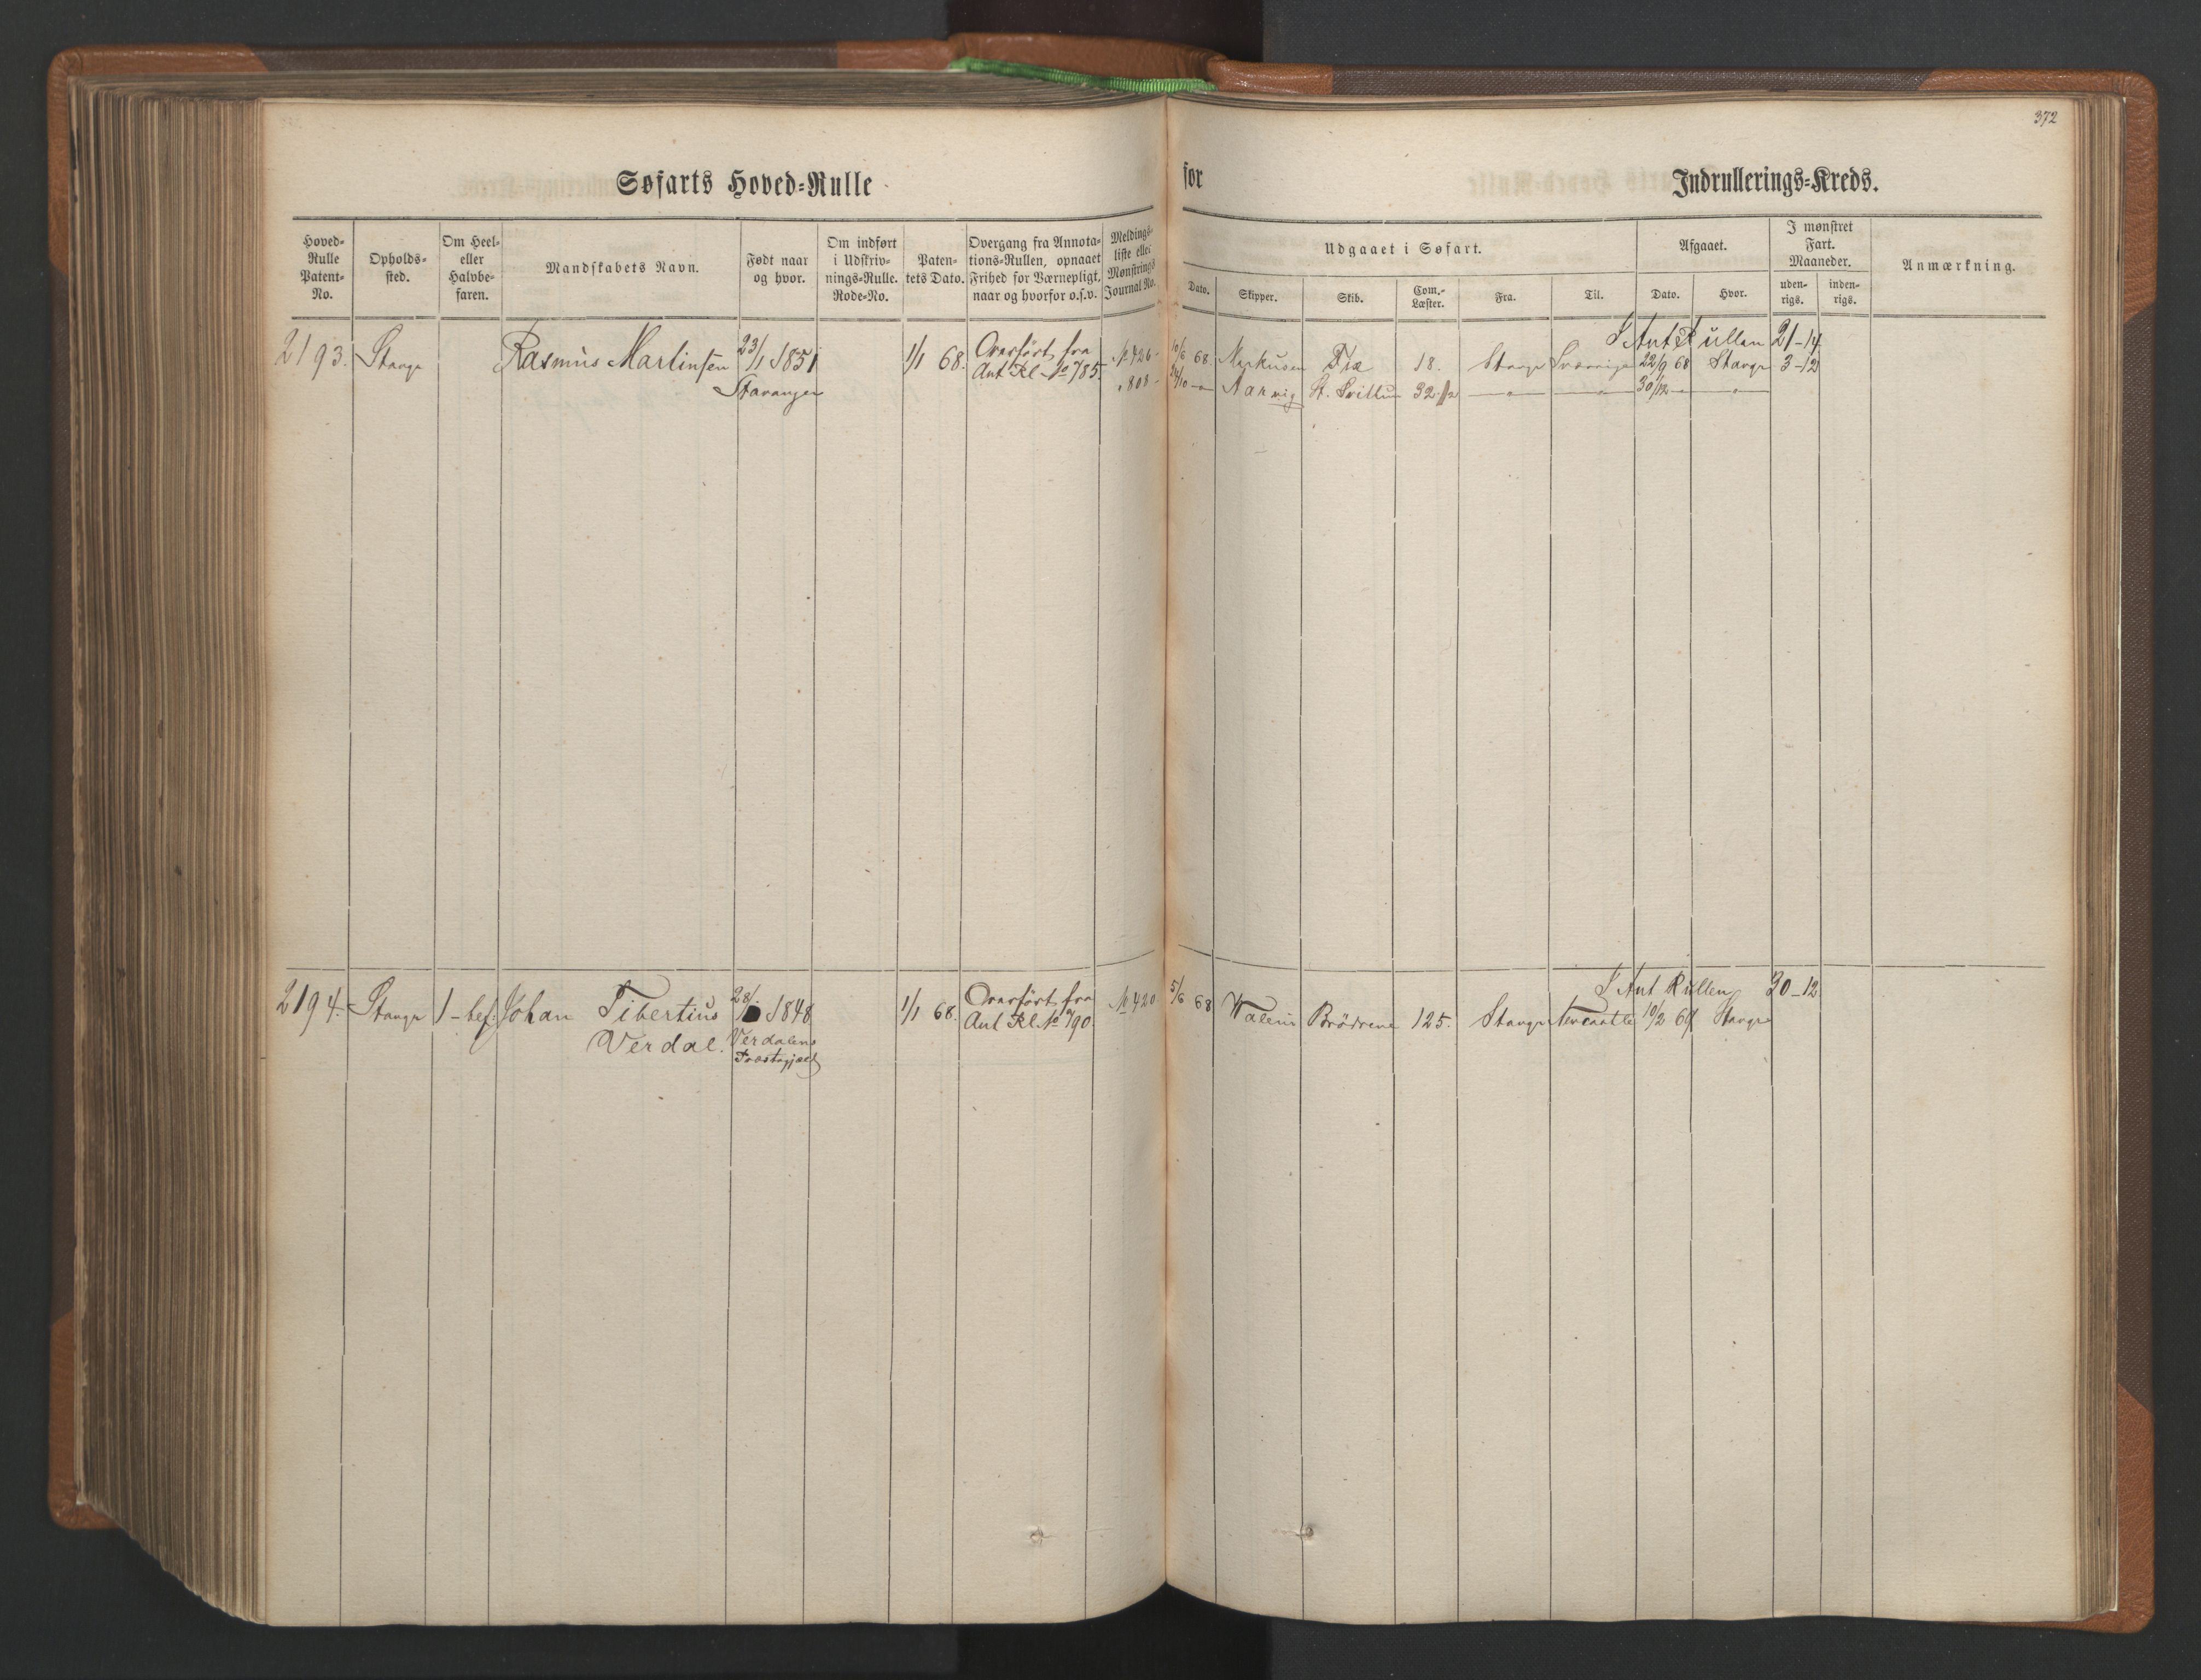 372
Søfarts Hoved=Rulle for Indrullerings=Kreds.
Hoved=Rulle Patent=No.
Opholds=sted.
Om Heel= eller Halvbe=faren.
Mandskabets Navn.
Født naar og hvor.
Om indført i Udskriv=nings=Rulle. Rode=No.
Paten=tets Dato.
Overgang fra Annota=tions=Rullen, opnaaet Frihed for Værnepligt, naar og hvorfor o.s.v.
Meldings=liste eller Mønstrings Journal No.
Udgaaet i Søfart.
Dato.
Skipper.
Skib.
Com.=Læster.
Fra.
Til.
Afgaaet.
Dato.
Hvor.
I mønstret Fart. Maaneder.
uden=rigs.
inden=rigs.
Anmærkning.
I Ant Rullen 21-14
2193. Stavgr Rasmus Martinsen 23/1 1851 1/1 68. Overført fra No 426 10/6 68 Markusen 18. Stavgr Sverrige 22/9 68 Stavgr 3-12
Stavanger Ant Rl. No 785. " 808 24/10 -"- Aarvig St. Svittun 32 1/2 -"- -"- 30/12 -"- -"-
I Ant Rullen 30-12
2194. Stavgr 1-bef. Johan Tibertius 28/ 1848 1/1 68. Overført fra No 420 5/6 68 Brödrene 125. Stavgr Newcastle 10/2 69 Stavgr
Verdal. Verdalens Ant Rl. No 790.
Præstegjæld